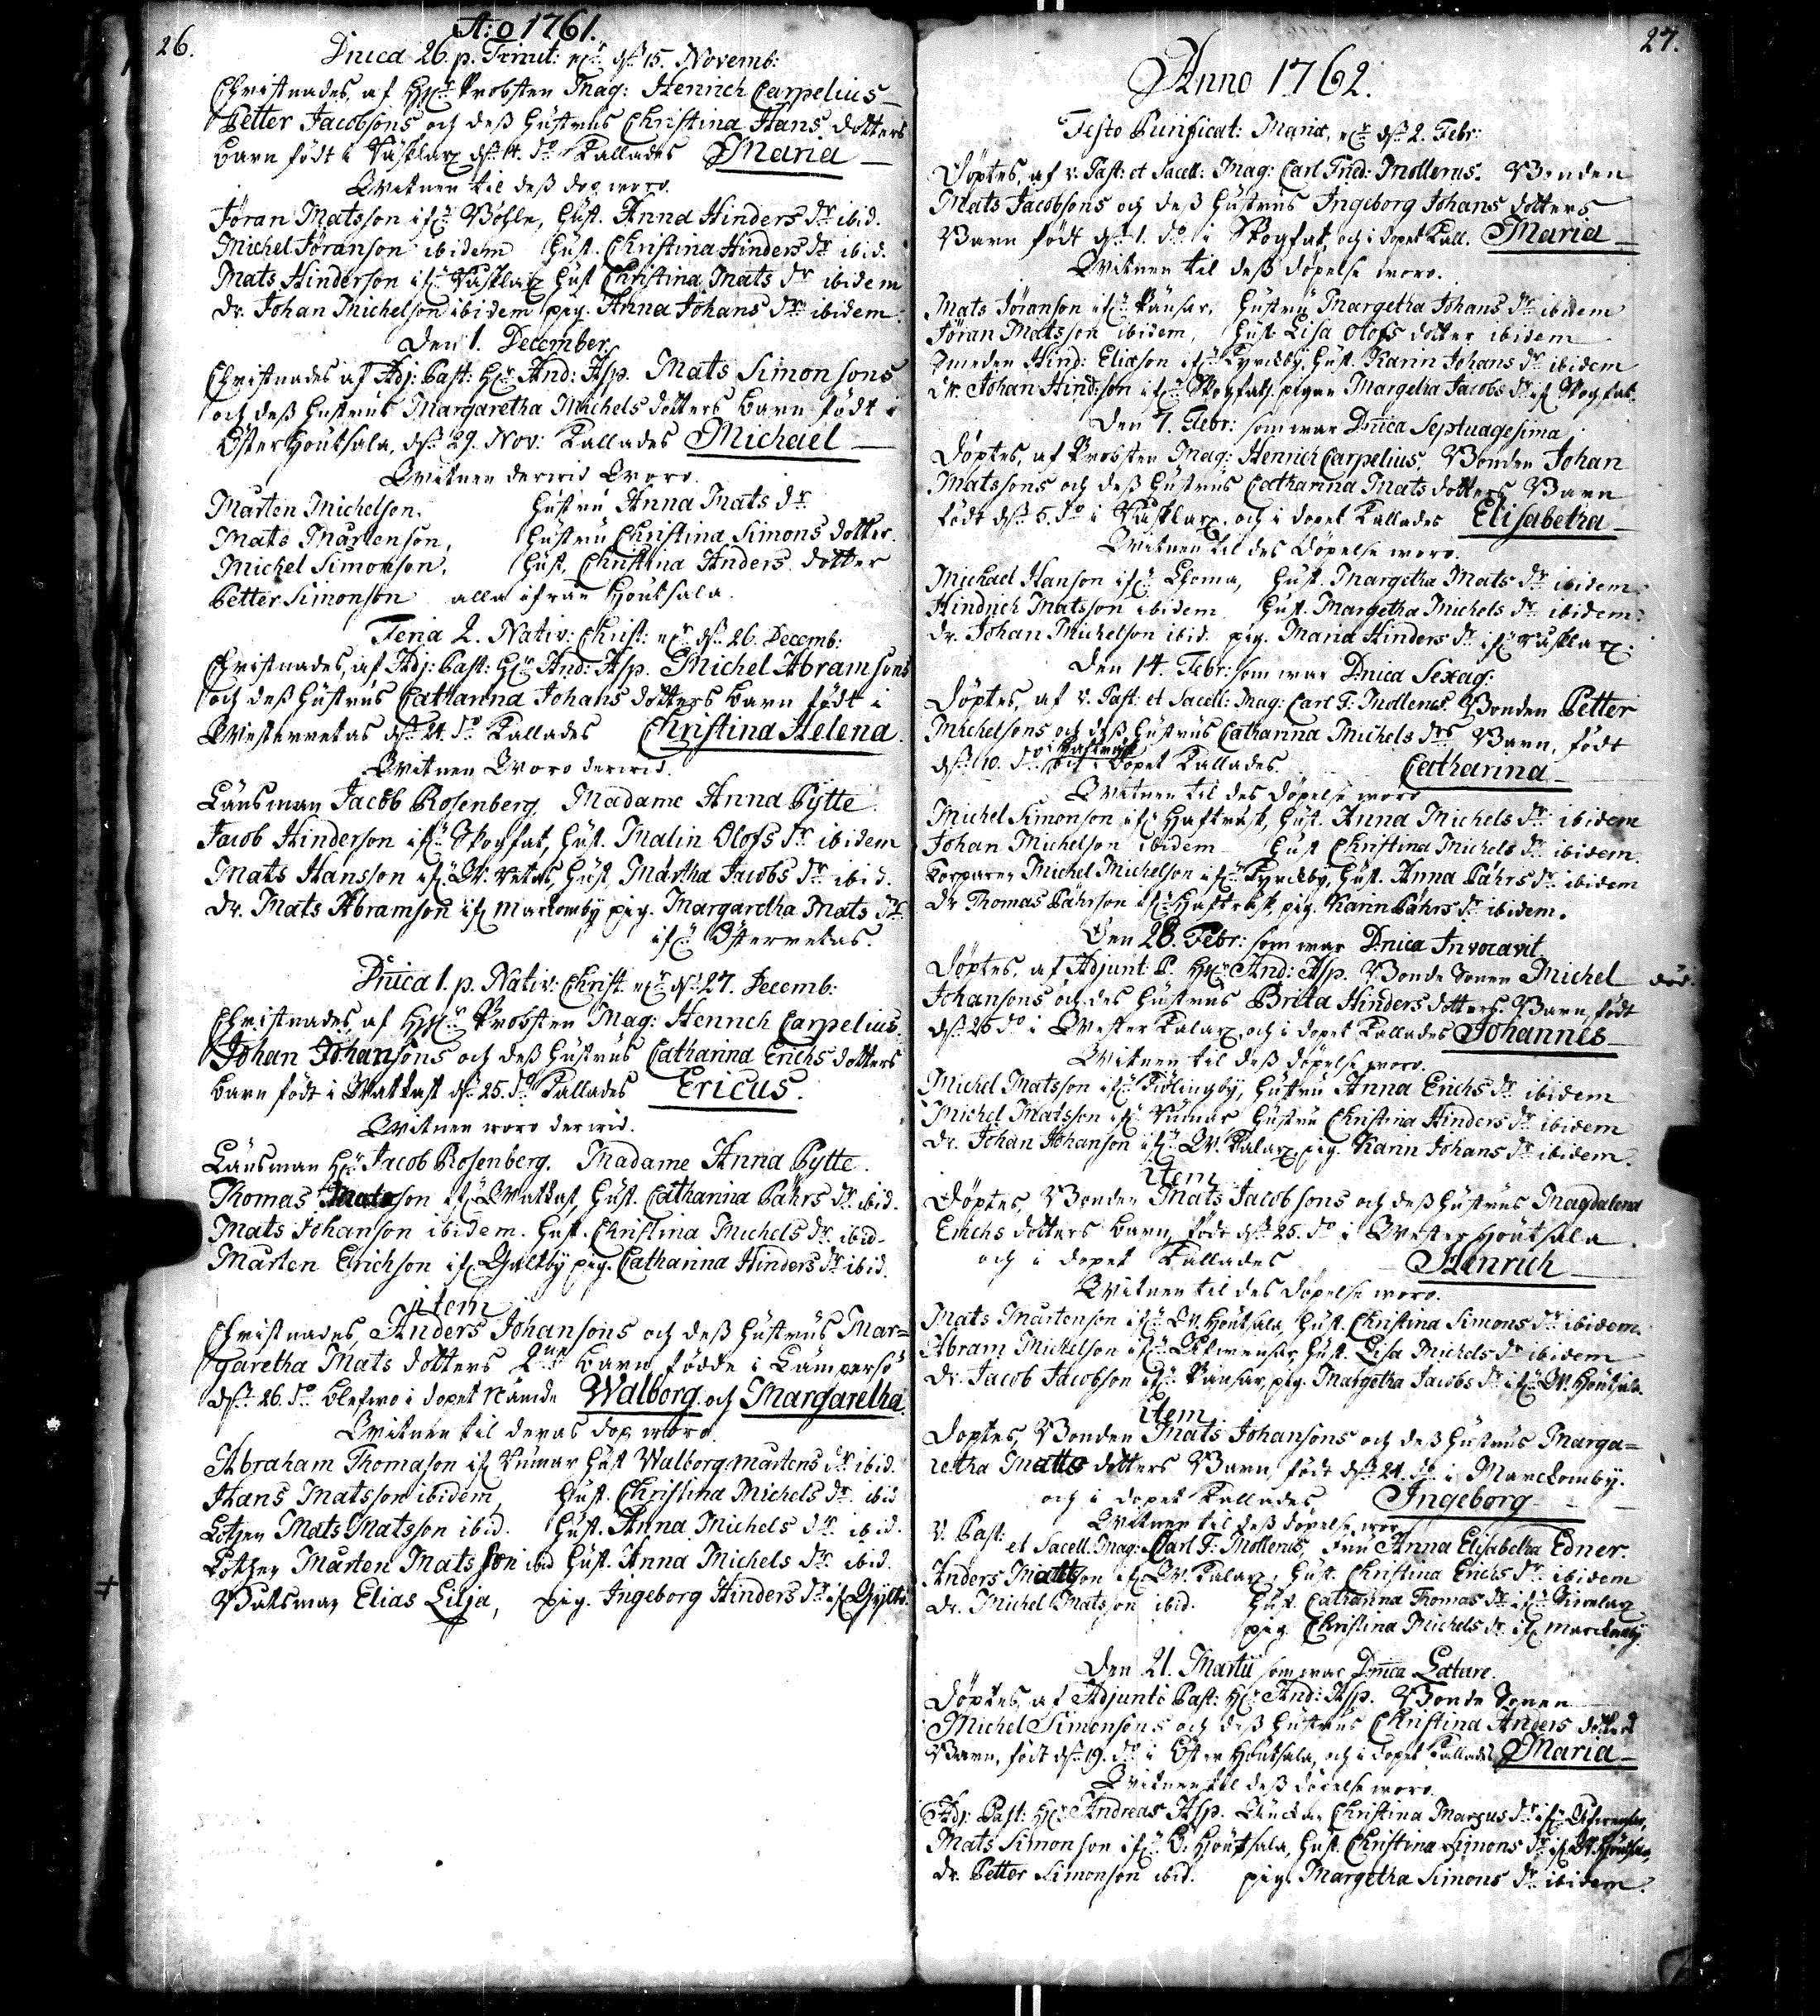 26.
A:o 1761.
Dnica 26. p. Trinit: d. 15. Novemb:
Christnades, af H:r Probsten Mag: Henrich Carpelius
Petter Jacobsons och deß hustrus Christina Hans dotters
barn födt i d. 14. d:o kallades Maria
Witnen til deß dop woro.
Jöran Matsson ifr: Böhle, hust. Anna Hinders d:r ibid.
Michel Jöranson ibidem hust. Christina Hinders d:r ibid.
Mats Hinderson ifr: hust Christina Mats d:r ibidem
dr. Johan Michelson ibidem pig. Anna Johans d:r ibidem
Den 1. December
Christnades af Adj: Past: H:r And: Asp. Mats Simonsons
och deß hustrus Margaretha Michels dotters barn födt i
Öster Houtsala, d. 29. Nov: kallades Michael
Witnen derwid Woro.
Mårten Michelson. hustru Anna Mats d:r
Mats Mårtenson, hustru Christina Simons dotter.
Michel Simonson, hust. Christina Anders dotter
Petter Simonson alla ifrån Houtsala.
Feria 2. Nativ: Christ: d. 26. Decemb:
Christnades, af Adj: Past: H:r And: Asp. Michel Abramsons
och deß hustrus Catharina Johans dotters barn födt i
Westerretas d. 24. d:o kallades Christina Helena.
Witnen Woro derwid.
Länsman Jacob Rosenberg, Madame Anna Pytte.
Jacob Hinderson ifr: Skogfat, hust. Malin Olofs d:r ibidem
Mats Hansson if: W. retas, hust. Märtha Jacobs d:r ibid.
dr. Mats Abramson if: Markomby pig. Margaretha Mats d:r
ifr: Österretas.
Dnica 1. p. Nativ: Christ d. 27. Decemb:
Christnades, af H:r Probsten Mag: Henrich Carpelius.
Johan Johansons och deß hustrus Catharina Erichs dotters
barn födt i Wattkast d. 25. d:o kallades Ericus.
Witnen woro derwid.
Länsman H:r Jacob Rosenberg. Madame Anna Pytte.
Thomas Matsson ifr: Wattkast, hust. Catharina Pährs d:r ibid.
Mats Johanson ibidem. hust. Christina Michels d:r ibid.
Mårten Erichson if: Galtby pig. Catharina Hinders d:r ibid.
item
Christnades, Anders Johansons och deß hustrus Mar=
garetha Mats dotters 2:ne barn, födde i Lempersö
d. 26. d:o blefwo i dopet nämde Walborg och Margaretha.
Witnen til deras dop woro.
Abraham Thomason if: Rumar hust Walborg Mårtens d:r ibid.
Hans Matsson ibidem, hust. Christina Michels d:r ibid
Lotsen Mats Matsson ibid. hust. Anna Michels d:r ibid.
Lotsen Mårten Matsson ibid hust. Anna Michels d:r ibid.
Båtsman Elias Lilja, pig. Ingeborg Hinders d:r if:
27.
Anno 1762.
Festo Purificat: Mariæ, d. 2. Febr:
Döptes, af v. Past: et Sacell: Mag: Carl Frid: Mollerus. Bonden
Mats Jacobsons och deß hustrus Ingeborg Johans dotters
Barn födt d. 1. d:o i Skogfat, och i dopet kall. Maria
Witnen til deß döpelse woro.
Mats Jöranson ifr: Pansar, hustru Margetha Johans d:r ibidem
Jöran Matsson ibidem, hust Lisa Olofs dotter ibidem
Hind: Eliason ifr: Kyrckby, hust. Karin Johans d:r ibidem
dr. Johan Hindsson ifr: Skogfat, pigan Margetha Jacobs d:r if: Skogfat.
Den 7. Febr: som war Dnica Septuagesima
Döptes, af Probsten Mag: Henrich Carpelius, Bonden Johan
Matssons och deß hustrus Catharina Mats dotters Barn
födt d. 5. d:o i och i dopet kallades Elisabetha
Witnen til des Döpelse woro.
Michael Hanson ifr: hust. Margetha Mats d:r ibidem
Hindrich Matsson ibidem hust. Margetha Michels d:r ibidem
dr. Johan Michelson ibid. pig. Maria Hinders d:r ifr:
Den 14. Febr: som war Dnica Sexag:
Döptes, af v. Past: et Sacell: Mag: Carl F: Mollerus. Bonden Petter
Michelsons och deß hustrus Catharina Michels d:rs Barn, födt
d. 10. d:o i Haftrask och i dopet kallades. Catharina
Witnen til des döpelse woro
Michel Simonson ifr: Haftrask, hust. Anna Michels d:r ibidem
Johan Michelson ibidem hust Christina Michels d:r ibidem.
Michel Michelson ifr: Kyrckby, hust. Anna Pährs d:r ibidem
dr Thomas Pährson ifr: Haftrask, pig. Karin Pährs d:r ibidem.
Den 28. Febr: som war Dnica Invocavit
Döptes, af Adjunt: P. H:r And: Asp. Bonde Sonen Michel död.
Johansons och des hustrus Brita Hinders dotters Barn, födt
d. 26 d:o i Wester Kalax, och i dopet kallades Johannes
Witnen til deß döpelse woro.
Michel Matsson ifr: hustru Anna Erichs d:r ibidem
Michel Matsson ifr: Rumar hustru Christina Hinders d:r ibidem
dr. Johan Johanson ifr: W. Kalax, pig. Karin Johans d:r ibidem.
item
Döptes, Bonden Mats Jacobsons och deß hustrus Magdalena
Erichs dotters barn, födt d. 25. d:o i Wester Houtsala
och i dopet kallades Henrich
Witnen til des döpelse woro.
Mats Mårtenson ifr: W. Houtsala, hust. Christina Simons d:r ibidem.
Abram Michelson ifr: hust. Lisa Michels d:r ibidem
dr. Jacob Jacobson ifr: Pansar, pig. Margetha Jacobs d:r ifr: W. Houtsala.
item
Döptes, Bonden Mats Johansons och deß hustrus Marga=
retha Matts dotters Barn födt d. 24. d:o i Markomby.
och i dopet kallades, Ingeborg
Witnen til deß döpelse woro
v. Past: et Sacell. Mag: Carl F: Mollerus, Fru Anna Elisabetha Edner.
Anders Mattson ifr: W. Kalax, hust. Christina Erichs d:r ibidem
dr. Michel Matsson ibid. hust. Catharina Thomas d:r ifr:
pig. Christina Michels d:r if: Markomby
Den 21. Martii som war Dnica Lætare.
Döptes, af Adjunti Past: H:r And: Asp. Bonde Sonen
Michel Simonsons och deß hustrus Christina Anders dotters
Barn, födt d. 19. d:o i Öster Houtsala, och i dopet kallades Maria
Witnen til deß döpelse woro.
Adj: Past: H:r Andreas Asp. Christina Marcus d:r ifr:
Mats Simonson ifr: Ö. Houtsala, hust. Christina Simons d:r if: W. Houtsala,
dr. Petter Simonson ibid. pig. Margetha Simons d:r ibidem.